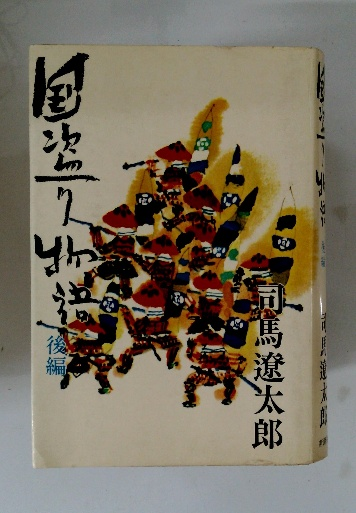 国盗り物語
後編
司馬遼太郎
国盗り物語
後編
司馬遼太郎